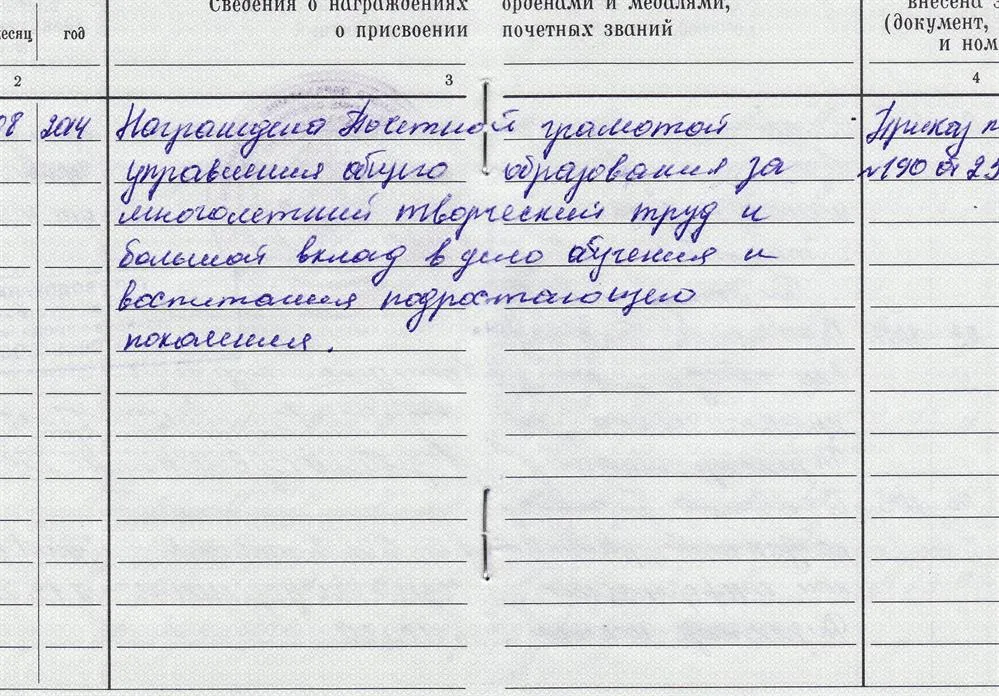 Сведения о награждениях орденами и медалями, внесена з
есяц год о присвоении почетных званий (документ,
и ном
2 3 4
08 2014 Награждена Почетной грамотой Приказ
управления общего образования за №190 от 25
многолетний творческий труд и
большой вклад в дело обучения и
воспитания подростающего
поколения.